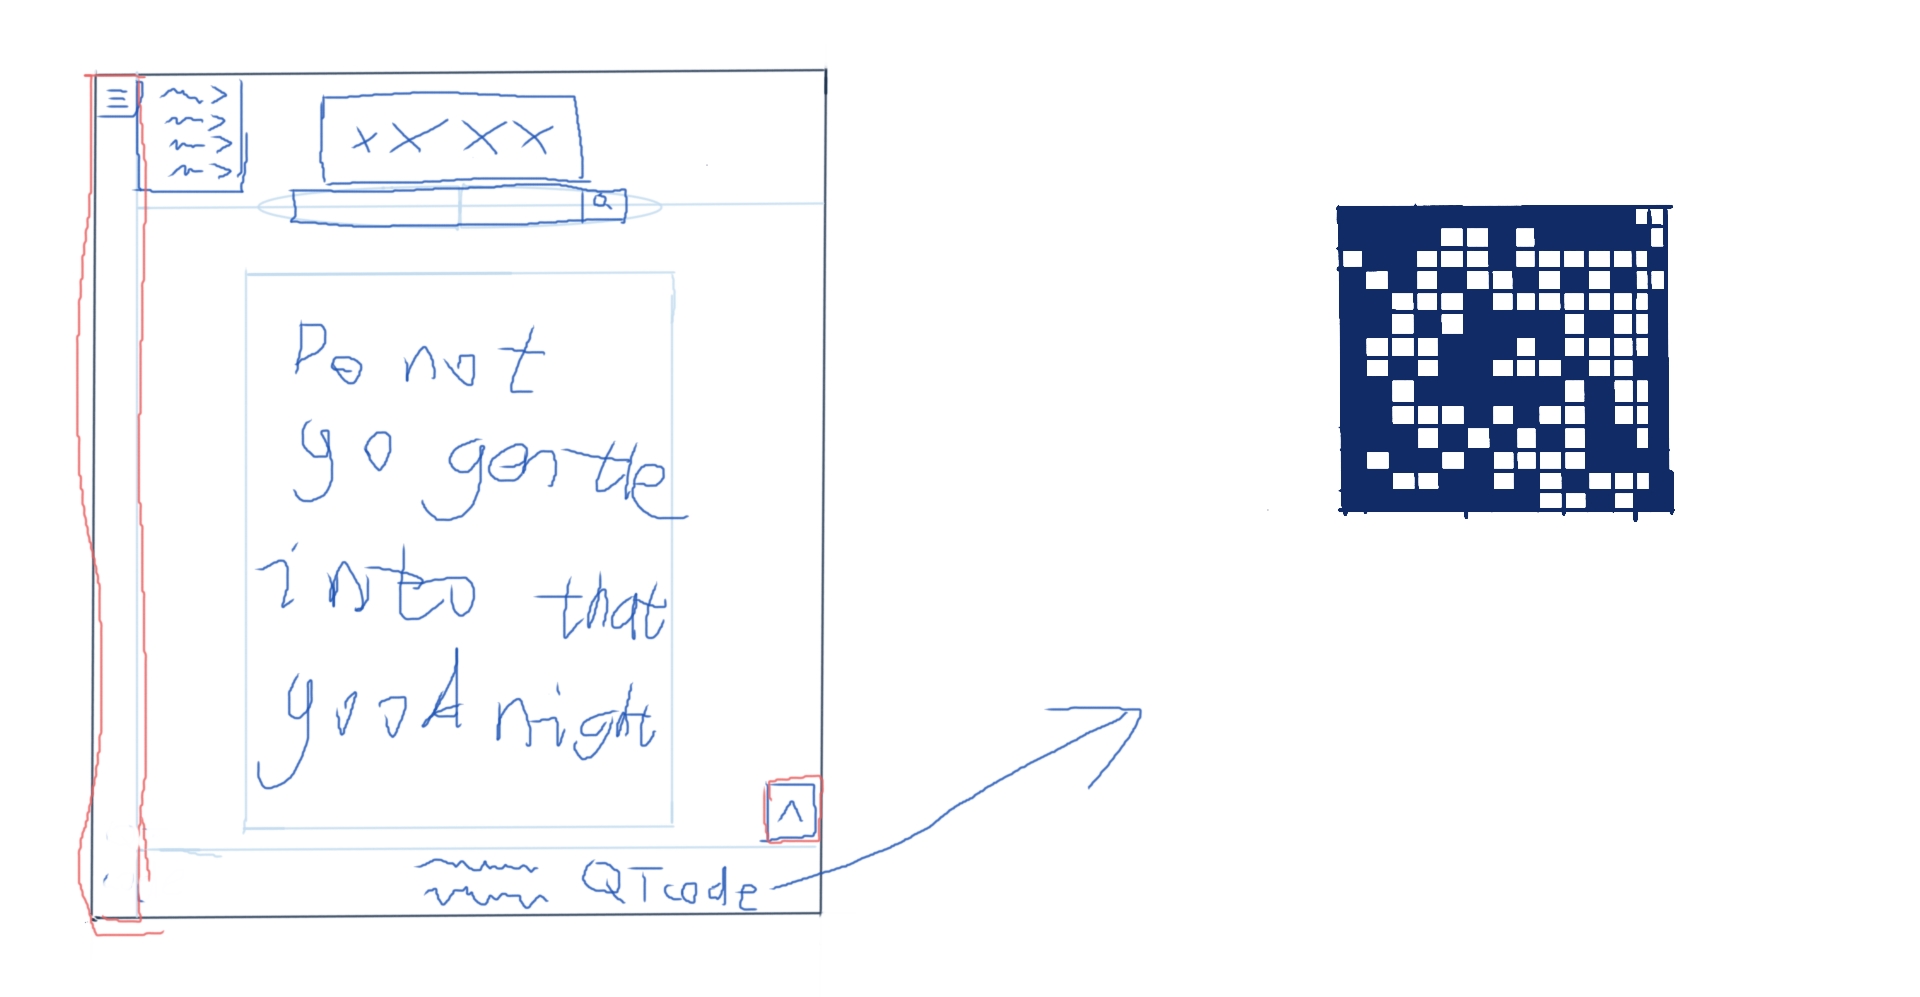 XXXX
Do not
go gentle
into that
good night
QTcode